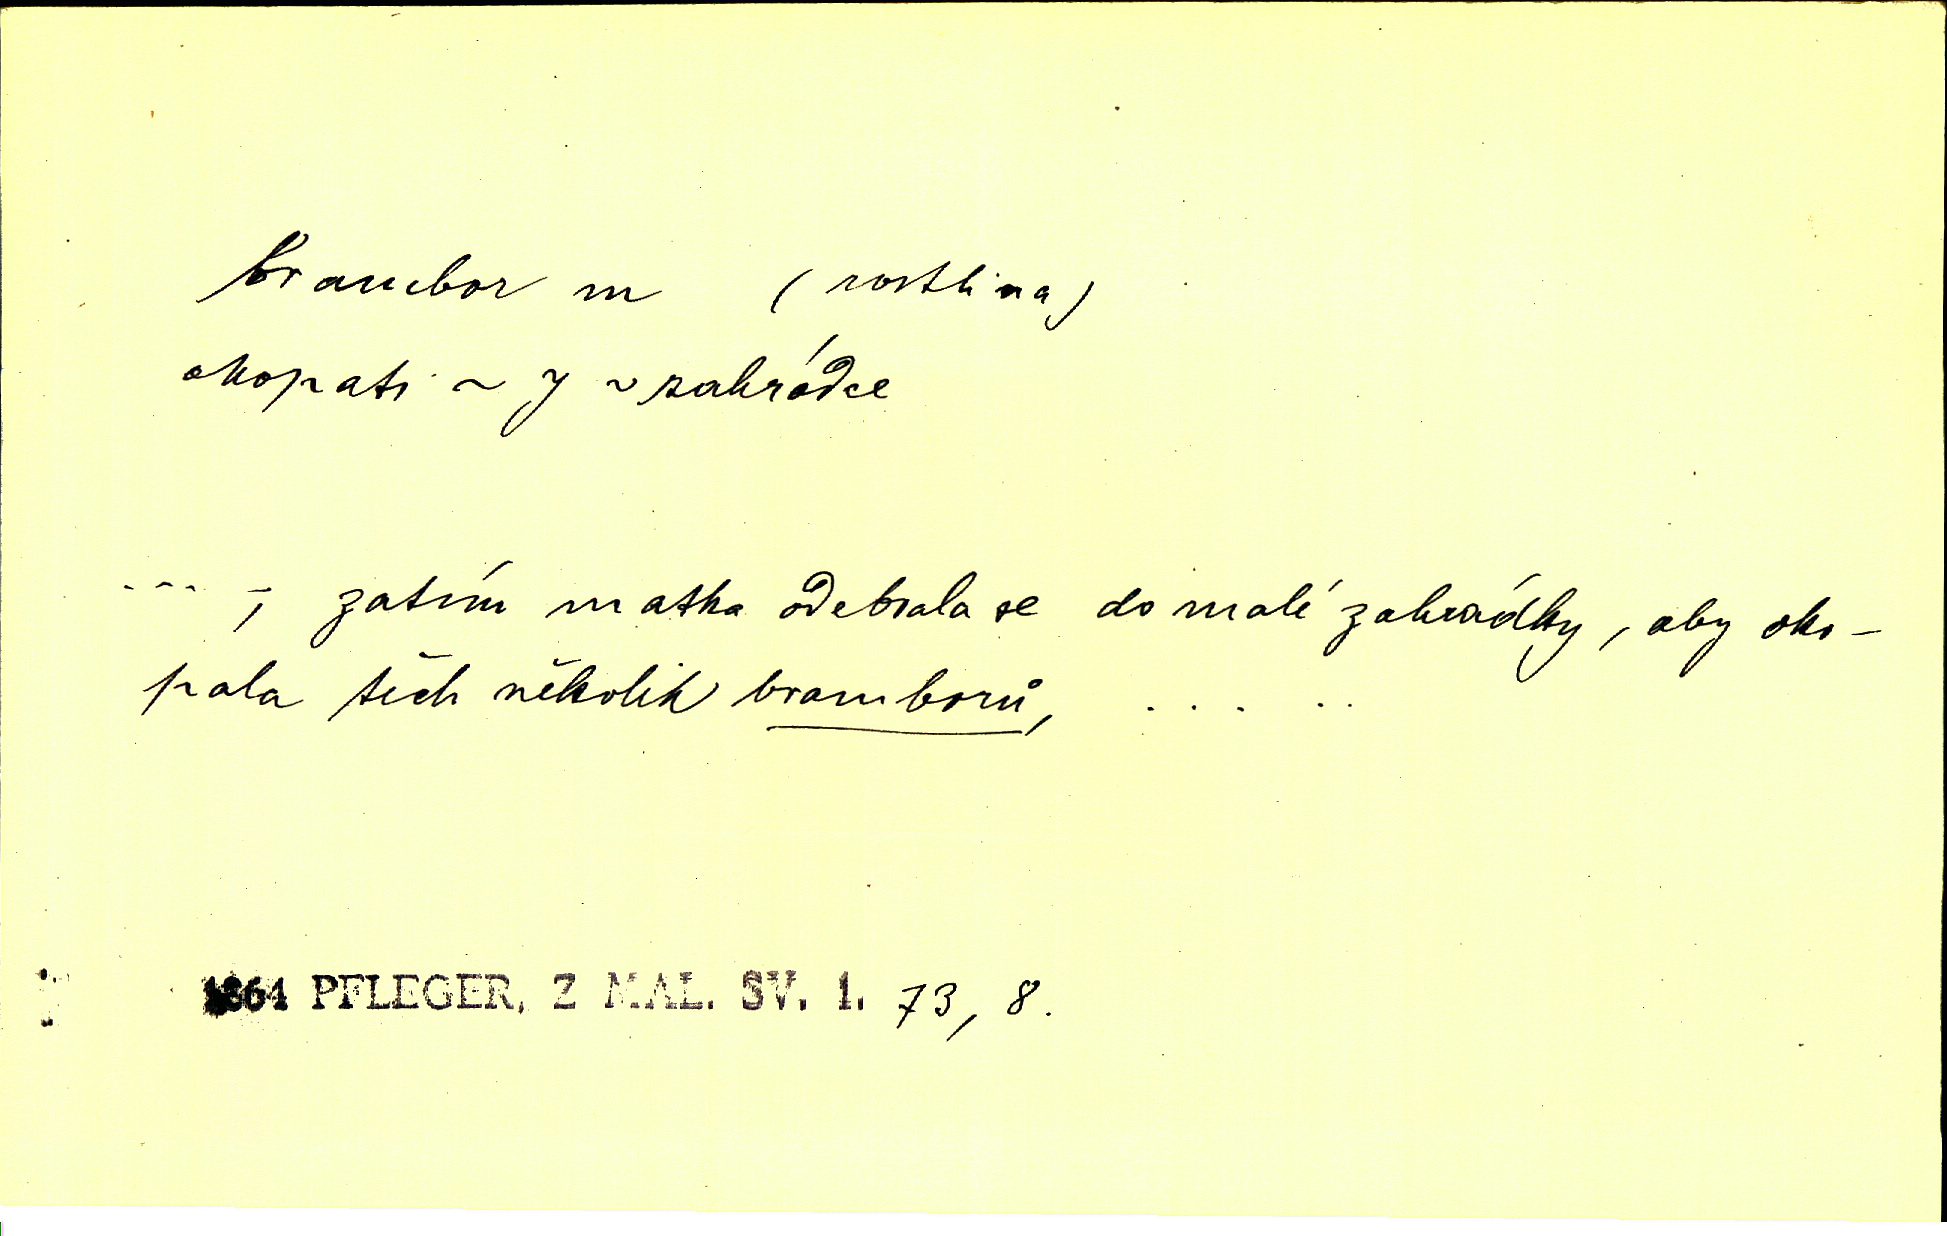 brambor m (rostlina)
okopati ~ y v zahrádce
--- ; zatím matka odebrala se do malé zahrádky, aby oko-
pala těch několik bramborů, . . . . .
1864 PFLEGER, Z MAL. SV. 1. 73, 8.